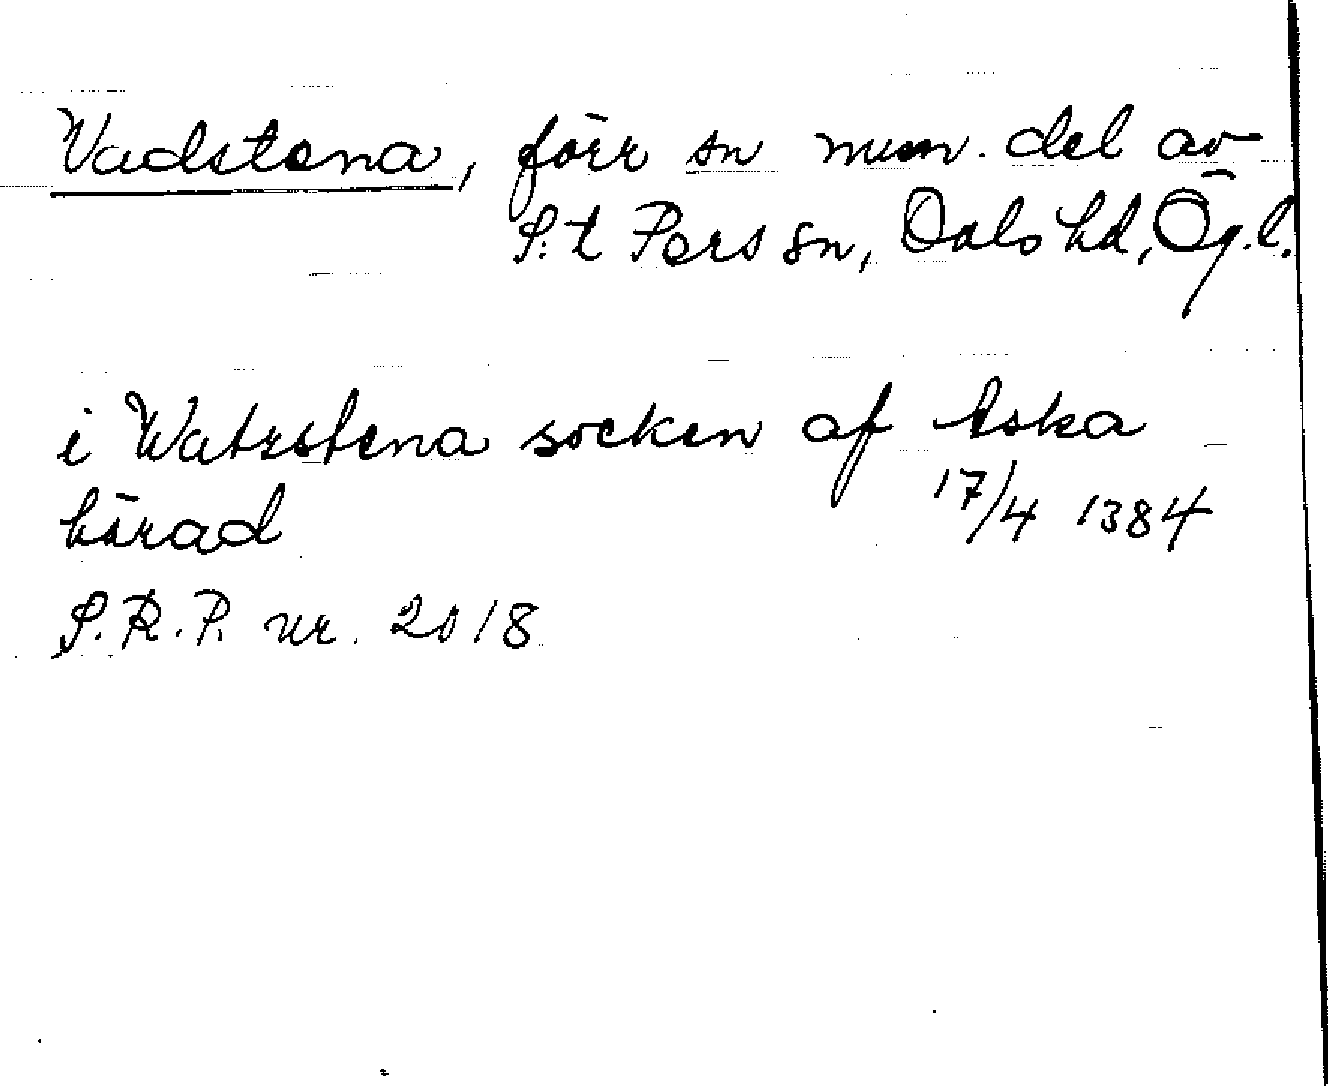 Vadstena, förr sn num. del av
S:t Pers sn, Dals hd, Ög. l.
i Watzstena socken af Aska
härad 17/4 1384
S.R.P. nr. 2018